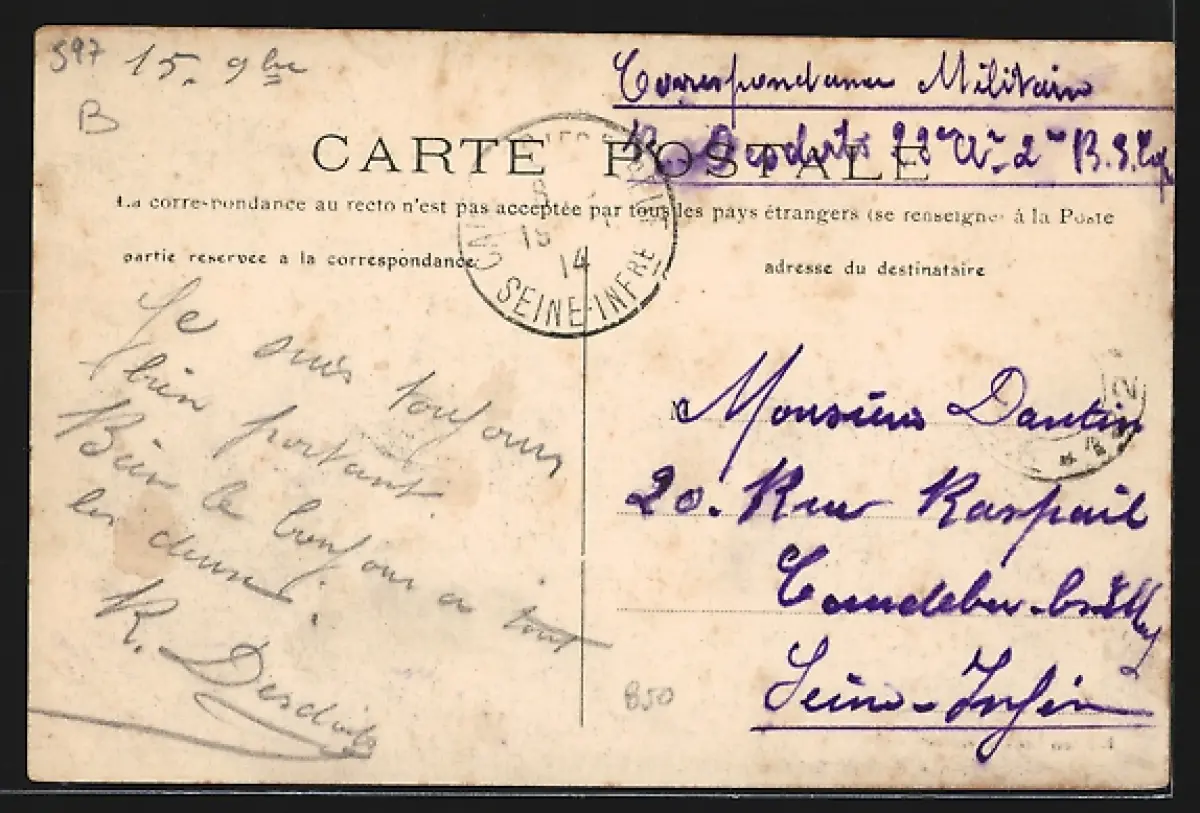 597
15. 9bre
B
Correspondance Militaire
R. 22e 2me
CARTE POSTALE
La correspondance au recto n'est pas acceptée par tous les pays étrangers (se renseigner à la Poste
partie réservée à la correspondance
adresse du destinataire
14
SEINE-INFRE
Je suis toujours
bien portant.
Bien le bonjour a tout
les deux.
R. Deschits
Monsieur Dantin
20. Rue Raspail
Caudebec-les-Elb
Seine-Infér
850